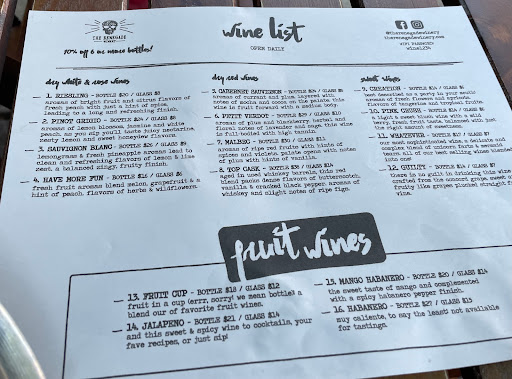 THE RENEGADE
WINERY
10% off 6 or more bottles!
wine list
OPEN DAILY
@therenegadewinery
therenegadewinery.com
WIFI PASSWORD
dry white & rose wines
1. RIESLING - BOTTLE $20 / GLASS $8
aromas of bright fruit and citrus flavors of
fresh peach with just a hint of spice,
leading to a long and refreshing finish.
2. PINOT GRIGIO - BOTTLE $24 / GLASS
aromas of lemon blossom, jasmine and white
peach, as you sip you'll taste juicy nectarine,
zesty lemon and sweet honeydew flavors
3. SAUVIGNON BLANC - BOTTLE $26 / GLASS $9
lemongrass & fresh pineapple aromas lead to
clean and refreshing flavors of lemon & lime
zest, a balanced zingy, fruity finish.
4. HAVE MORE FUN - BOTTLE $16 / GLASS $6
fresh fruit aromas blend melon, grapefruit & a
hint of peach. flavors of herbs & wildflowers.
dry red wines
5. CABERNET SAUVIGNON - BOTTLE / GLASS
aromas of currant and plum layered with
notes of mocha and cocoa on the palate, this
wine is fruit forward with a medium body.
6. PETIT VERDOT - BOTTLE $29 / GLASS $10
aromas of plum and blackberry, herbal and
floral notes of lavender and sage, this wine
is full-bodied with high tannin.
7. MALBEC - BOTTLE $30 / GLASS $11
aromas of ripe red fruits with hints of
spices and violets, palate opens with notes
of plum with hints of vanilla.
8. TOP CASK - BOTTLE / GLASS $14
aged in used whiskey barrels, this red
blend packs dense flavors of butterscotch,
vanilla & cracked black pepper, aromas of
whiskey and slight notes of ripe figs.
sweet wines
9. CREATION - BOTTLE / GLASS
best described as a party in your mouth
aromas of fresh flowers and apricots,
flavors of tangerine and tropical fruits.
10. PINK CRUSH - BOTTLE / GLASS
a light & sweet blush wine with a mild
berry, fresh fruit flavor, balanced with just
the right amount of sweetness.
11. WHATEVER - BOTTLE $17 / GLASS $7
our most sophisticated wine, a delicate and
complex blend of unicorn farts & mermaid
tears all of our best selling wines blended
into one!
12. GUILTY - BOTTLE / GLASS
there is no guilt in drinking this wine
crafted from the concord grape, sweet and
fruity like grapes plucked straight from the
vine.
fruit wines
13. FRUIT CUP - BOTTLE $18 / GLASS $12
fruit in a cup (errr, sorry! we mean bottle) a
blend our of favorite fruit wines.
14. JALAPENO - BOTTLE $21 / GLASS $14
and this sweet & spicy wine to cocktails, your
fave recipes, or just sip!
15. MANGO HABANERO - BOTTLE $20 / GLASS $14
the sweet taste of mango and complemented
with a spicy habanero pepper finish.
16. HABANERO - BOTTLE $27 / GLASS $13
muy caliente, to say the least! not available
for tastings.